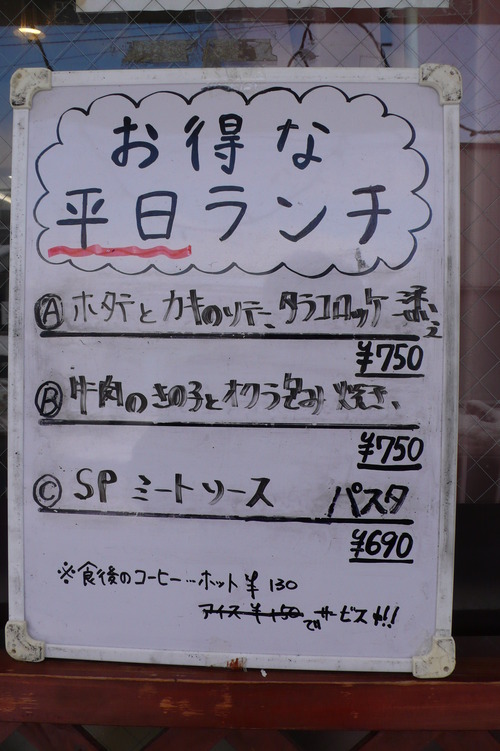 お得な
平日ランチ
Ⓐ ホタテとカキのソテー、タラコロッケ添え
¥750
Ⓑ 牛肉のきの子とオクラ包み焼き、
¥750
Ⓒ SP ミートソース パスタ
¥690
※食後のコーヒー…ホット ¥130
アイス ¥150 でサービス中!!